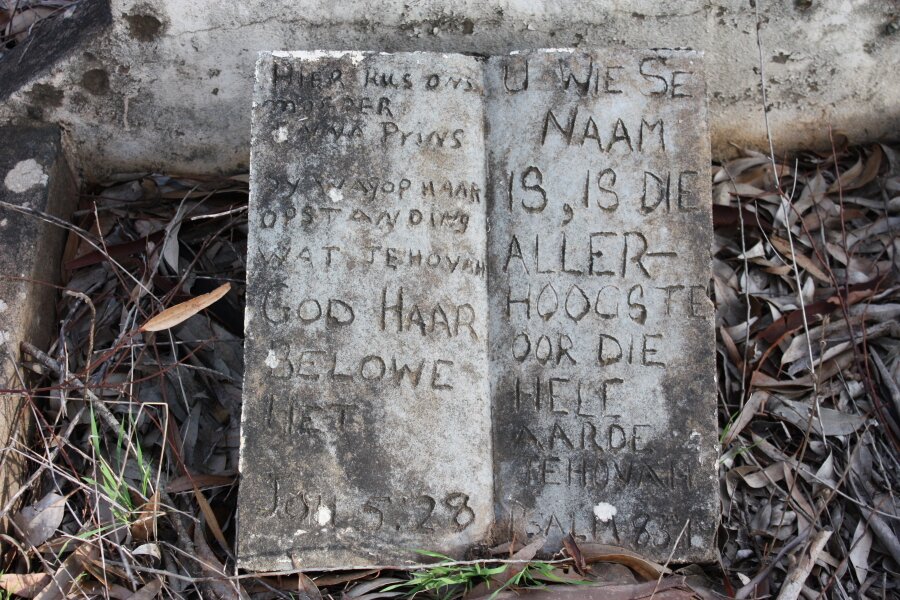 HIER RUS ONS
MOEDER
ANNA PRINS
SY WAG OP HAAR
OPSTANDING
WAT JEHOVAH
GOD HAAR
BELOWE
HET
JOH 5:28
U WIE SE
NAAM
IS, IS DIE
ALLER-
HOOGSTE
OOR DIE
HELE
AARDE
JEHOVAH
PSALM 83